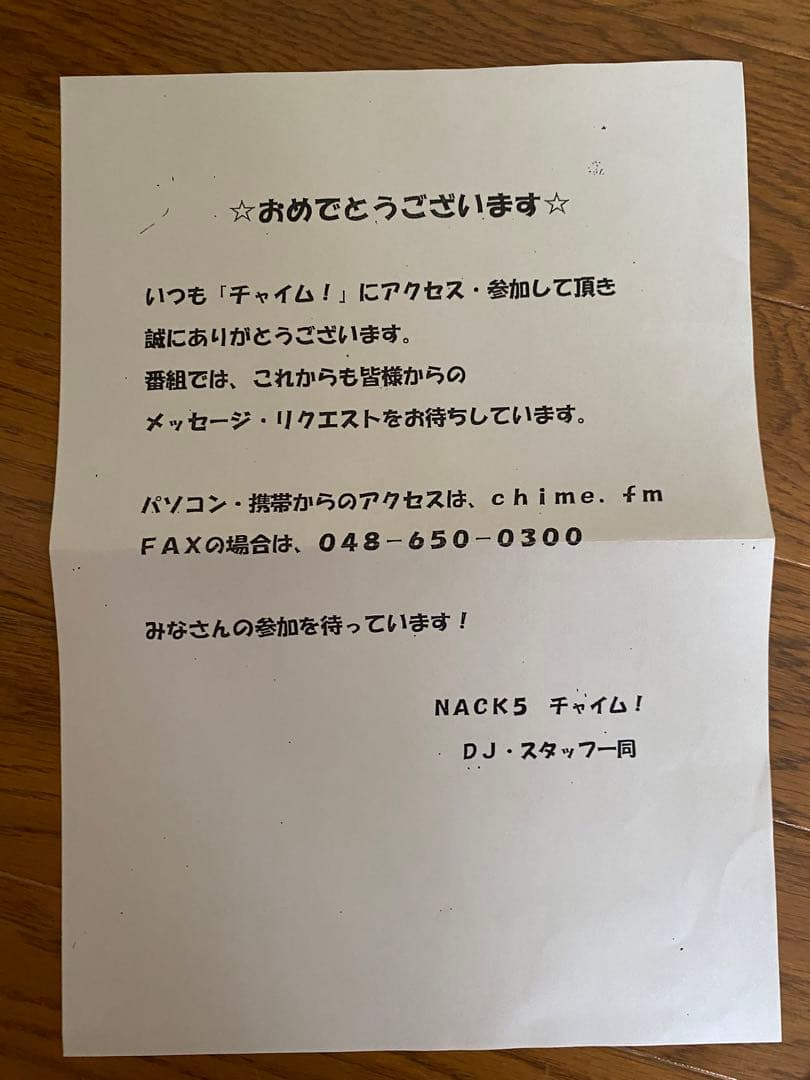 ☆おめでとうございます☆
いつも「チャイム！」にアクセス・参加して頂き
誠にありがとうございます。
番組では、これからも皆様からの
メッセージ・リクエストをお待ちしています。
パソコン・携帯からのアクセスは、ｃｈｉｍｅ．ｆｍ
ＦＡＸの場合は、０４８－６５０－０３００
みなさんの参加を待っています！
ＮＡＣＫ５　チャイム！
ＤＪ・スタッフ一同